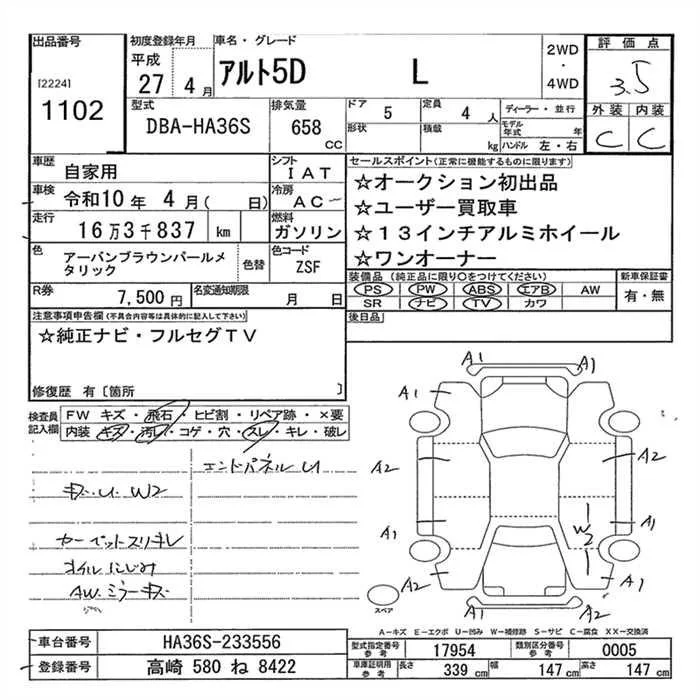 出品番号
[2224]
1102
初度登録年月
平成
27 4 月
車名・グレード
アルト5D L
2WD
・
4WD
評価点
3.5
外装 内装
C C
型式
DBA-HA36S
排気量
658
CC
ドア 5
定員 4 人
ディーラー・並行
形状
積載 kg
モデル年式 年
ハンドル 左・右
車歴 自家用
シフト IAT
車検 令和10年 4月( 日)
冷房 AC
走行 16万3千837 km
燃料 ガソリン
色 アーバンブラウンパールメ
タリック
色替
色コード ZSF
R券 7,500円
名変通知期限 月 日
セールスポイント(正常に機能するものに限ります)
☆オークション初出品
☆ユーザー買取車
☆13インチアルミホイール
☆ワンオーナー
装備品(純正品に限り○をつけてください)
新車保証書
PS PW ABS エアB AW
SR ナビ TV カワ
有・無
後日品
注意事項申告欄(不具合内容等は具体的に記入して下さい)
☆純正ナビ・フルセグTV
修復歴 有〔箇所 〕
検査員
記入欄
FW キズ・飛石・ヒビ割・リペア跡・×要
内装 キズ・汚レ・コゲ・穴・スレ・キレ・破レ
エンドパネルU
キズ.U. W2
カーペットスリキレ
オイルにじみ
AW.ミラーキズ
A1 A1
A1
A2 A2
A1 A1
W2
A2 A1
A2 A2
スペア
A-キズ E-エクボ U-凹み W-補修跡 S-サビ C-腐食 XX-交換済
車台番号 HA36S-233556
登録番号 高崎 580 ね 8422
型式指定番号
参考
17954
類別区分番号
参考
0005
車庫証明用
参考
長さ 339 cm 幅 147 cm 高さ 147 cm